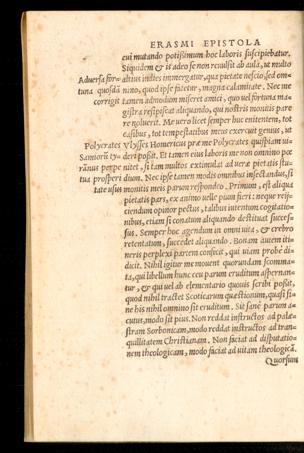 ERASMI EPISTOLA
cui mutando potissimum hoc laboris suscipiebatur.
Siquidem & is adeo se non revulsit ab aula, ut multo
Adversa for altius indies immergatur, qua pietate nescio, sed om-
tuna quosdā nino, quod ipse fatetur, magna calamitate. Nec me
corrigit tamen admodum miseret amici, quo vel fortuna ma-
gistra resipiscat aliquando, qui nostris monitis pare
re noluerit. Me vero licet semper huc enitentem, tot
casibus, tot tempestatibus meus exercuit genius, ut
Polycrates Vlysses Homericus præ me Polycrates quispiam vi-
Samiorū ty- deri possit. Et tamen eius laboris me non omnino pœ
rānus perpe nitet, si tam multos extimulat ad veræ pietatis stu-
tua prosperi dium. Nec ipse tamen modis omnibus insectandus, si
tate usus monitis meis parum respondeo. Primum, est aliqua
pietatis pars, ex animo velle pium fieri: neque reij-
ciendum opinor pectus, talibus intentum cogitatio
nibus, etiam si conatum aliquando destituat succes-
sus. Semper hoc agendum in omni vita, & crebro
retentatum, succedet aliquando. Bonam autem iti-
neris perplexi partem confecit, qui viam probe di-
dicit. Nihil igitur me movent quorundam scomma-
ta, qui libellum hunc ceu parum eruditum aspernan-
tur, & qui vel ab elementario quovis scribi possit,
quod nihil tractet Scoticarum quæstionum, quasi si-
ne his nihil omnino sit eruditum. Sit sane parum a-
cutus, modo sit pius. Non reddat instructos ad palæ-
stram Sorbonicam, modo reddat instructos ad tran-
quillitatem Christianam. Non faciat ad disputatio-
nem theologicam, modo faciat ad vitam theologicā.
Quorsum